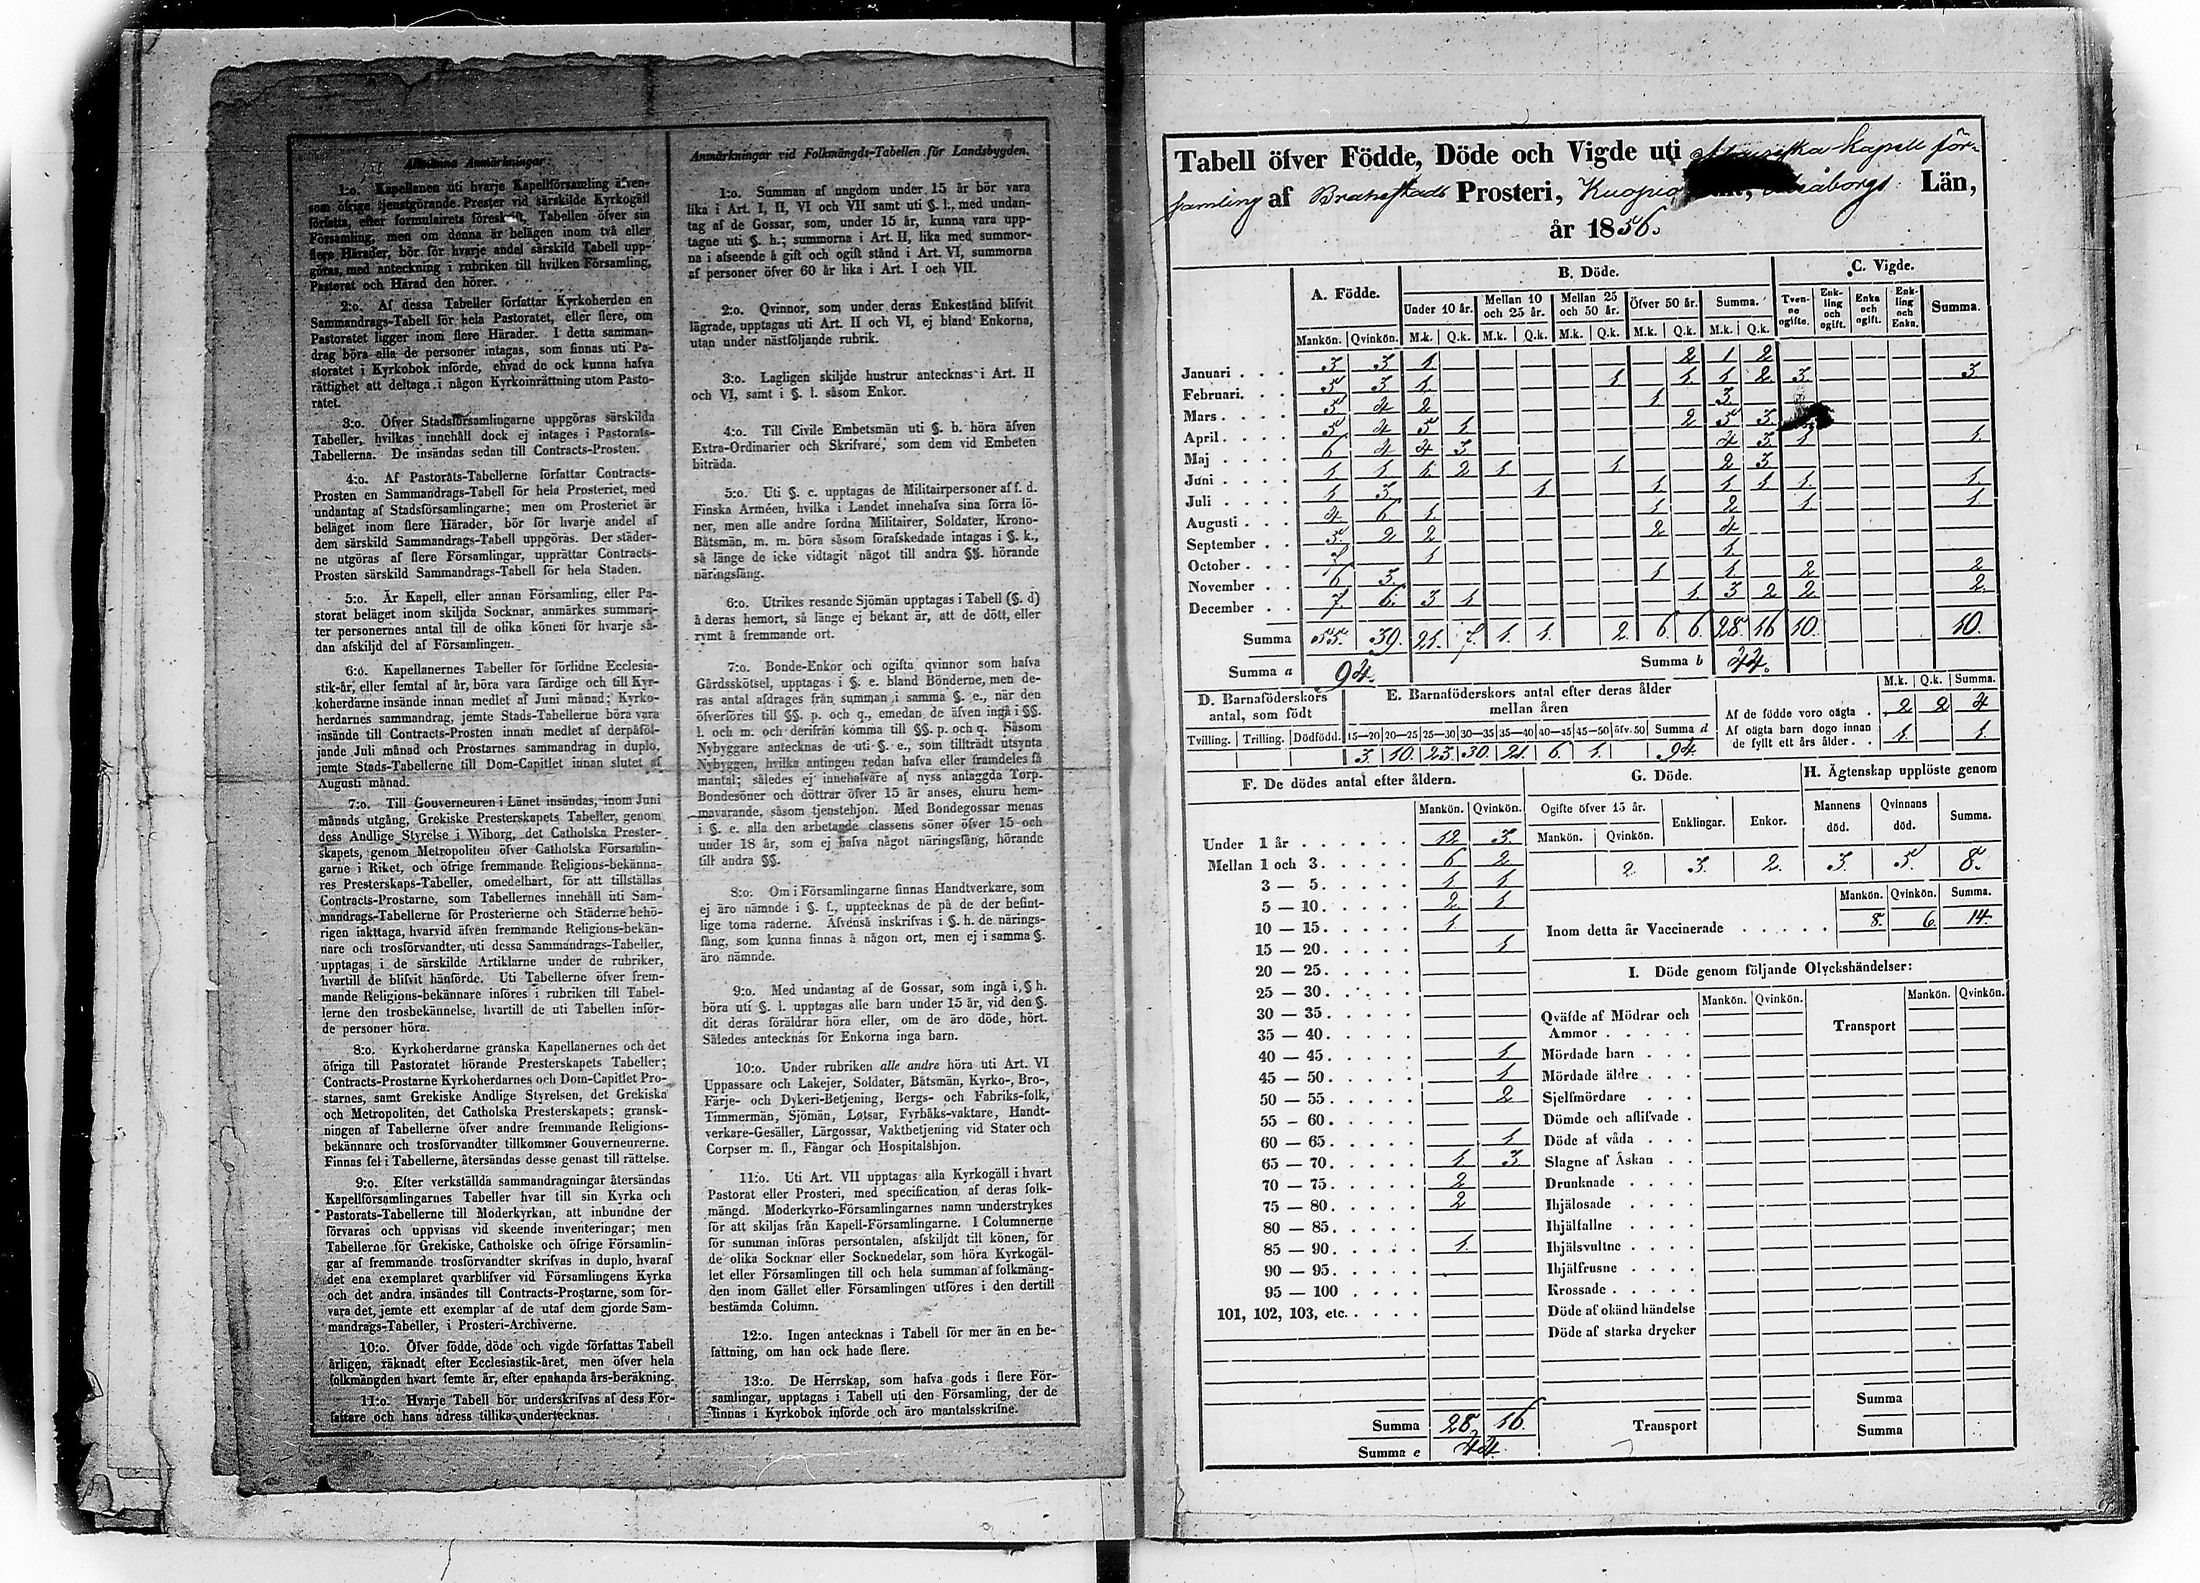 Allmänna Anmärkningar:
1:o. Kapellanen uti hvarje Kapellförsamling äfven-
som öfrige tjenstgörande Prester vid särskilde Kyrkogäll
författa, efter formulairets föreskrift, Tabellen öfver sin
Församling, men om denna är belägen inom två eller
flere Härader, bör för hvarje andel särskild Tabell upp-
göras, med anteckning i rubriken till hvilken Församling,
Pastorat och Härad den hörer.
2:o. Af dessa Tabeller författar Kyrkoherden en
Sammandrags-Tabell för hela Pastoratet, eller flere, om
Pastoratet ligger inom flere Härader. I detta samman-
drag böra alla de personer intagas, som finnas uti Pa-
storatet i Kyrkobok införde, ehvad de ock kunna hafva
rättighet att deltaga i någon Kyrkoinrättning utom Pasto-
ratet.
3:o. Öfver Stadsförsamlingarne uppgöras särskilda
Tabeller, hvilkas innehåll dock ej intages i Pastorats-
Tabellerna. De insändas sedan till Contracts-Prosten.
4:o. Af Pastorats-Tabellerne författar Contracts-
Prosten en Sammandrags-Tabell för hela Prosteriet, med
undantag af Stadsförsamlingarne; men om Prosteriet är
beläget inom flere Härader, bör för hvarje andel af
dem särskild Sammandrags-Tabell uppgöras. Der städer-
ne utgöras af flere Församlingar, upprättar Contracts-
Prosten särskild Sammandrags-Tabell för hela Staden.
5:o. Är Kapell, eller annan Församling, eller Pa-
storat beläget inom skiljda Socknar, anmärkes summari-
ter personernes antal till de olika könen för hvarje så-
dan afskiljd del af Församlingen.
6:o. Kapellanernes Tabeller för förlidne Ecclesia-
stik-år, eller femtal af år, böra vara färdige och till Kyr-
koherdarne insände innan medlet af Juni månad; Kyrko-
herdarnes sammandrag, jemte Stads-Tabellerne böra vara
insände till Contracts-Prosten innan medlet af derpåföl-
jande Juli månad och Prostarnes sammandrag in duplo,
jemte Stads-Tabellerne till Dom-Capitlet innan slutet af
Augusti månad.
7:o. Till Gouverneuren i Länet insändas, inom Juni
månads utgång, Grekiske Presterskapets Tabeller, genom
dess Andlige Styrelse i Wiborg, det Catholska Prester-
skapets, genom Metropoliten öfver Catholska Församlin-
garne i Riket, och öfrige fremmande Religions-bekänna-
res Presterskaps-Tabeller, omedelbart, för att tillställas
Contracts-Prostarne, som Tabellernes innehåll uti Sam-
mandrags-Tabellerne för Prosterierne och Städerne behö-
rigen iakttaga, hvarvid äfven fremmande Religions-bekän-
nare och trosförvandter, uti dessa Sammandrags-Tabeller,
upptagas i de särskilde Artiklarne under de rubriker,
hvartill de blifvit hänförde. Uti Tabellerne öfver frem-
mande Religions-bekännare införes i rubriken till Tabel-
lerne den trosbekännelse, hvartill de uti Tabellen inför-
de personer höra.
8:o. Kyrkoherdarne granska Kapellanernes och det
öfriga till Pastoratet hörande Presterskapets Tabeller;
Contracts-Prostarne Kyrkoherdarnes och Dom-Capitlet Pro-
starnes, samt Grekiske Andlige Styrelsen, det Grekiska
och Metropoliten, det Catholska Presterskapets; gransk-
ningen af Tabellerne öfver andre fremmande Religions-
bekännare och trosförvandter tillkommer Gouverneurerne.
Finnas fel i Tabellerne, återsändas desse genast till rättelse.
9:o. Efter verkställda sammandragningar återsändas
Kapellförsamlingarnes Tabeller hvar till sin Kyrka och
Pastorats-Tabellerne till Moderkyrkan, att inbundne der
förvaras och uppvisas vid skeende inventeringar; men
Tabellerne för Grekiske, Catholske och öfrige Församlin-
gar af fremmande trosförvandter skrifvas in duplo, hvaraf
det ena exemplaret qvarblifver vid Församlingens Kyrka
och det andra insändes till Contracts-Prostarne, som för-
vara det, jemte ett exemplar af de utaf dem gjorde Sam-
mandrags-Tabeller, i Prosteri-Archiverne.
10:o. Öfver födde, döde och vigde författas Tabell
årligen, räknadt efter Ecclesiastik-året, men öfver hela
folkmängden hvart femte år, efter epahanda års-beräkning.
11:o. Hvarje Tabell bör underskrifvas af dess För-
fattare och hans adress tillika undertecknas.
Anmärkningar vid Folkmängds-Tabellen för Landsbygden.
1:o. Summan af ungdom under 15 år bör vara
lika i Art. I, II, VI och VII samt uti §. l., med undan-
tag af de Gossar, som, under 15 år, kunna vara upp-
tagne uti §. h.; summorna i Art. II, lika med summor-
na i afseende å gift och ogift stånd i Art. VI, summorna
af personer öfver 60 år lika i Art. I och VII.
2:o. Qvinnor, som under deras Enkestånd blifvit
lägrade, upptagas uti Art. II och VI, ej bland Enkorna,
utan under nästföljande rubrik.
3:o. Lagligen skiljde hustrur antecknas i Art. II
och VI, samt i §. l. såsom Enkor.
4:o. Till Civile Embetsmän uti §. b. höra äfven
Extra-Ordinarier och Skrifvare, som dem vid Embeten
biträda.
5:o. Uti §. c. upptagas de Militairpersoner af f. d.
Finska Arméen, hvilka i Landet innehafva sina förra lö-
ner, men alle andre fordna Militairer, Soldater, Krono-
Båtsmän, m. m. böra såsom förafskedade intagas i §. k.,
så länge de icke vidtagit något till andra §§. hörande
näringsfång.
6:o. Utrikes resande Sjömän upptagas i Tabell (§. d)
å deras hemort, så länge ej bekant är, att de dött, eller
rymt å fremmande ort.
7:o. Bonde-Enkor och ogifta qvinnor som hafva
Gårdsskötsel, upptagas i §. e. bland Bönderne, men de-
ras antal afdrages från summan i samma §. e., när den
öfverföres till §§. p. och q., emedan de äfven ingå i §§.
l. och m. och derifrån komma till §§. p. och q. Såsom
Nybyggare antecknas de uti §. e., som tillträdt utsynta
Nybyggen, hvilka antingen redan hafva eller framdeles få
mantal; således ej innehafvare af nyss anlaggda Torp.
Bondesöner och döttrar öfver 15 år anses, ehuru hem-
mavarande, såsom tjenstehjon. Med Bondegossar menas
i §. e. alla den arbetande classens söner öfver 15 och
under 18 år, som ej hafva något näringsfång, hörande
till andra §§.
8:o. Om i Församlingarne finnas Handtverkare, som
ej äro nämnde i §. f., upptecknas de på de der befint-
lige toma raderne. Äfvenså inskrifvas i §. h. de närings-
fång, som kunna finnas å någon ort, men ej i samma §.
äro nämnde.
9:o. Med undantag af de Gossar, som ingå i, § h.
böra uti §. l. upptagas alle barn under 15 år, vid den §.
dit deras föräldrar höra eller, om de äro döde, hört.
Således antecknas för Enkorna inga barn.
10:o. Under rubriken alle andre höra uti Art. VI
Uppassare och Lakejer, Soldater, Båtsmän, Kyrko-, Bro-,
Färje- och Dykeri-Betjening, Bergs- och Fabriks-folk,
Timmermän, Sjömän, Lotsar, Fyrbåks-vaktare, Handt-
verkare-Gesäller, Lärgossar, Vaktbetjening vid Stater och
Corpser m. fl., Fångar och Hospitalshjon.
11:o. Uti Art. VII upptagas alla Kyrkogäll i hvart
Pastorat eller Prosteri, med specification af deras folk-
mängd. Moderkyrko-Församlingarnes namn understrykes
för att skiljas från Kapell-Församlingarne. I Columnerne
för summan införas persontalen, afskiljdt till könen, för
de olika Socknar eller Socknedelar, som höra Kyrkogäl-
let eller Församlingen till och hela summan af folkmäng-
den inom Gället eller Församlingen utföres i den dertill
bestämda Column.
12:o. Ingen antecknas i Tabell för mer än en be-
fattning, om han ock hade flere.
13:o. De Herrskap, som hafva gods i flere För-
samlingar, upptagas i Tabell uti den Församling, der de
finnas i Kyrkobok införde och äro mantalsskrifne.
Tabell öfver Födde, Döde och Vigde uti Kapell för-
samling af Brahestads Prosteri, Kuopio Uleåborgs Län,
år 1856.
A. Födde. B. Döde. C. Vigde.
Under 10 år. Mellan 10 och 25 år. Mellan 25 och 50 år. Öfver 50 år. Summa. Tven-ne ogifte. Enk-ling och ogift. Enka och ogift. Enk-ling och Enka. Summa.
Mankön. Qvinkön. M.k. Q.k. M.k. Q.k. M.k. Q.k. M.k. Q.k. M.k. Q.k.
Januari . . . 3 3 1 2 1 2
Februari. . . 5 3 1 1 1 1 2 3 3
Mars . . . 5 4 2 1 3
April . . . 5 4 5 1 2 5 3
Maj . . . . 6 4 4 3 4 3 1 1
Juni . . . . 1 1 1 2 1 1 2 3
Juli . . . . 1 3 1 1 1 1 1 1
Augusti . . . 4 6 1 1 2 1 1
September . . 5 2 2 2 4
October . . . 7 1 1
November . . . 6 3 1 1 2 2
December . . 7 6 3 1 1 3 2 2 2
Summa 55. 39. 21. 7. 1. 1. 2. 6. 6. 28 16 10. 10.
Summa a 94. Summa b 44.
D. Barnaföderskors antal, som födt
Tvilling. Trilling. Dödfödd.
E. Barnaföderskors antal efter deras ålder mellan åren
15—20 20—25 25—30 30—35 35—40 40—45 45—50 öfv. 50 Summa d
3. 10. 23. 30. 21. 6. 1. 94.
M.k. Q.k. Summa.
Af de födde voro oägta . 2 2 4
Af oägta barn dogo innan
de fyllt ett års ålder . . 1. 1.
F. De dödes antal efter åldern.
Mankön. Qvinkön.
Under 1 år . . . . . . 12 3.
Mellan 1 och 3. . . . . 6 2
3 — 5. . . . . 1 1
5 — 10. . . . . 2 1
10 — 15. . . . . 1
15 — 20. . . . . 1
20 — 25. . . . .
25 — 30. . . . .
30 — 35. . . . .
35 — 40. . . . .
40 — 45. . . . . 1
45 — 50. . . . . 1
50 — 55. . . . . 2
55 — 60. . . . .
60 — 65. . . . . 1
65 — 70. . . . . 1. 3
70 — 75. . . . . 2
75 — 80. . . . . 2
80 — 85. . . . .
85 — 90. . . . . 1.
90 — 95. . . . .
95 — 100 . . . .
101, 102, 103, etc. . . . .
Summa 28. 16.
Summa e 44.
G. Döde.
Ogifte öfver 15 år. Enklingar. Enkor.
Mankön. Qvinkön.
2. 3. 2.
H. Ägtenskap upplöste genom
Mannens död. Qvinnans död. Summa.
3. 5. 8.
Mankön. Qvinkön. Summa.
Inom detta år Vaccinerade . . . . . 8. 6. 14.
I. Döde genom följande Olyckshändelser:
Mankön. Qvinkön. Mankön. Qvinkön.
Qväfde af Mödrar och
Ammor . . . . . Transport
Mördade barn . . .
Mördade äldre . . .
Sjelfmördare . . .
Dömde och aflifvade .
Döde af våda . . .
Slagne af Åskan . .
Drunknade . . . .
Ihjälosade . . . .
Ihjälfallne . . . .
Ihjälsvultne . . . .
Ihjälfrusne . . . .
Krossade . . . . .
Döde af okänd händelse
Döde af starka drycker
Summa
Transport Summa